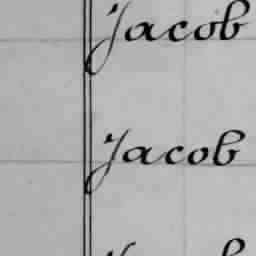 Jacob
Jacob